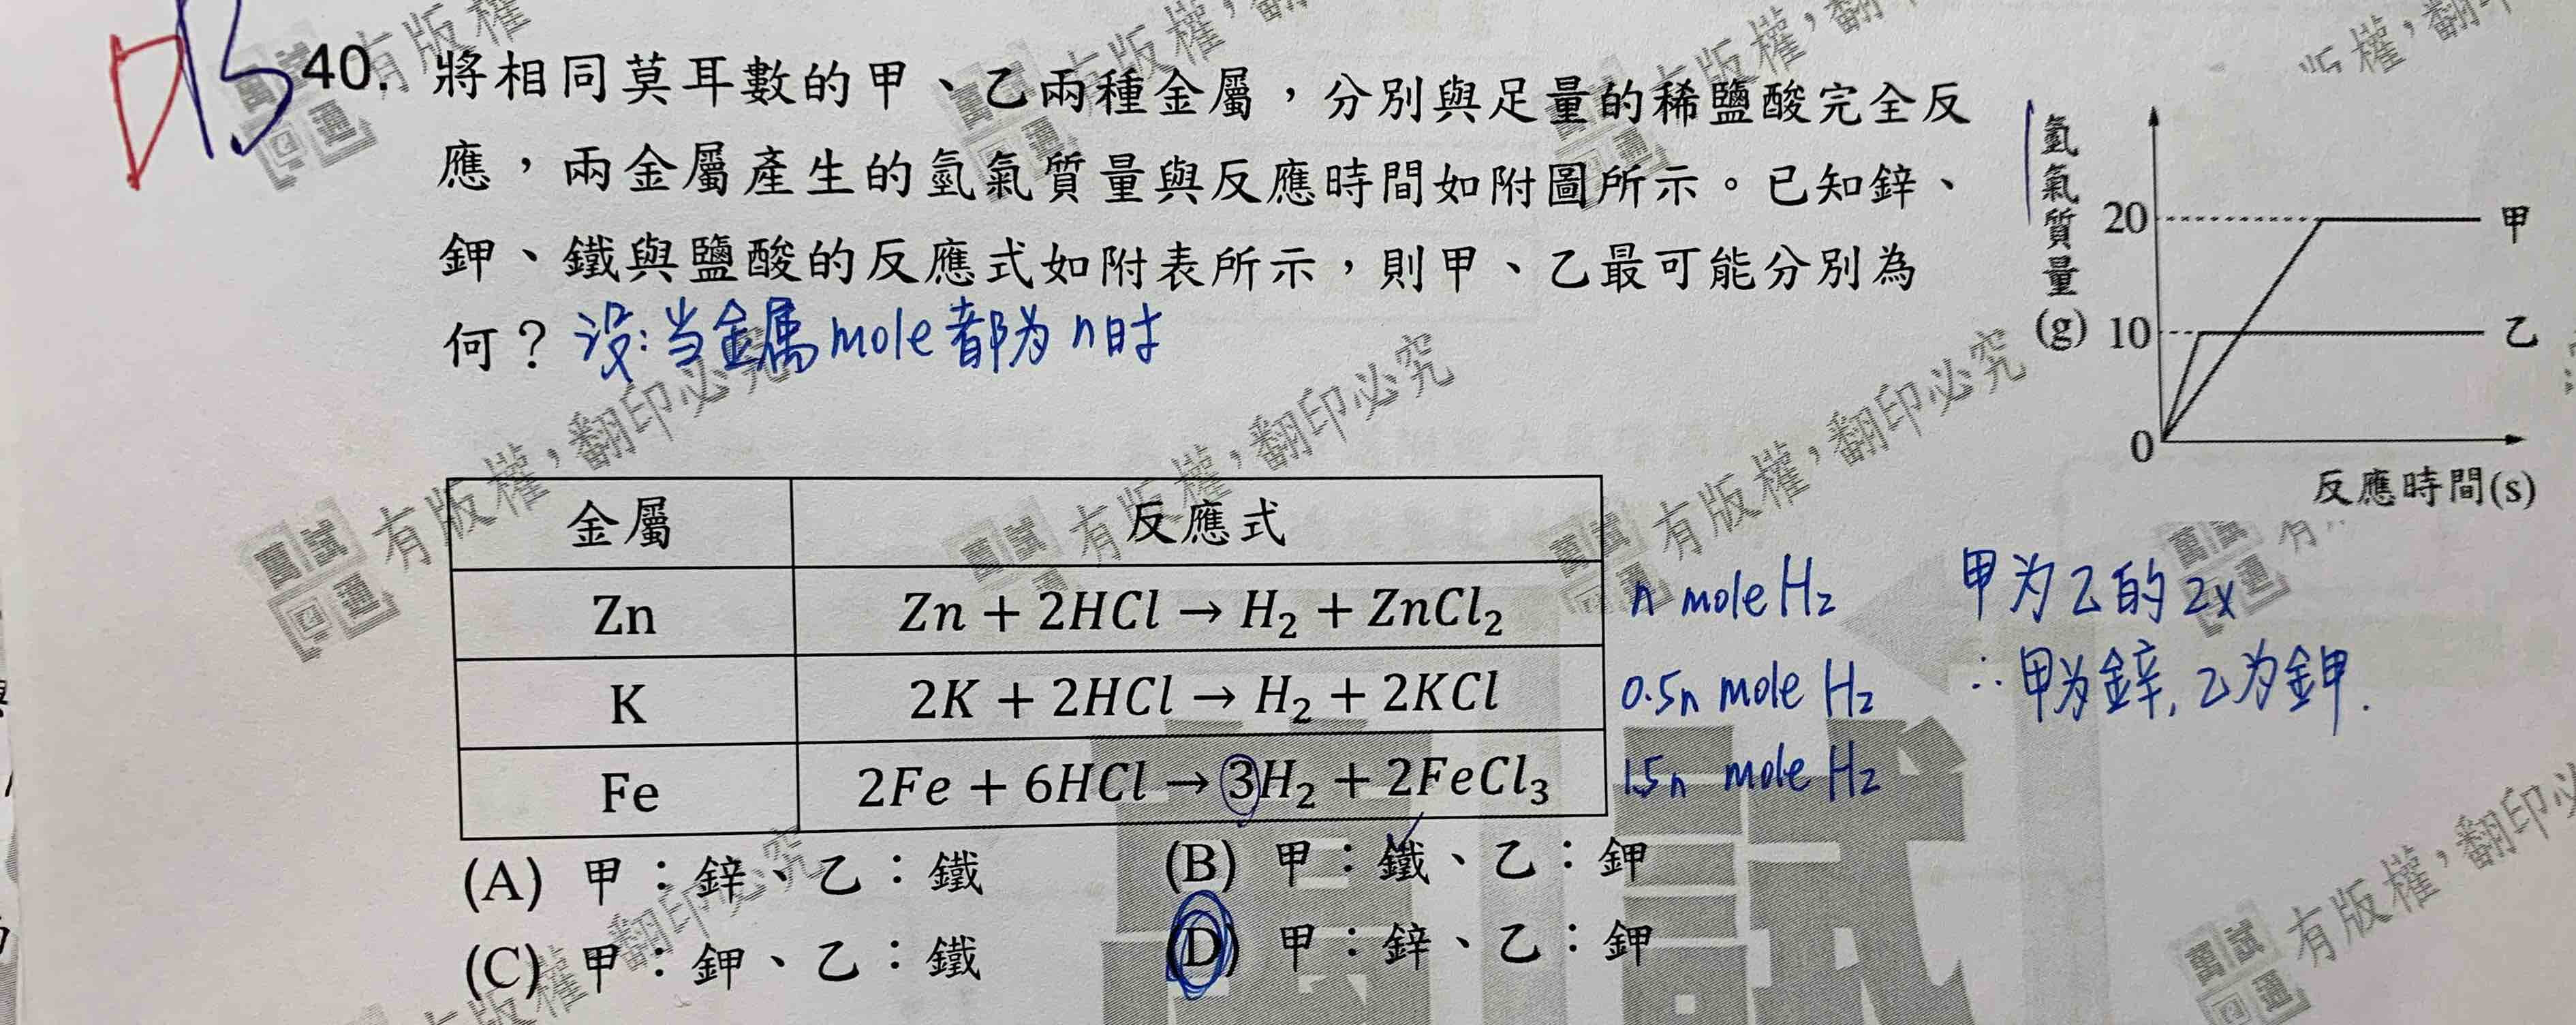 DB
40. 將相同莫耳數的甲、乙兩種金屬，分別與足量的稀鹽酸完全反
應，兩金屬產生的氫氣質量與反應時間如附圖所示。已知鋅、
鉀、鐵與鹽酸的反應式如附表所示，則甲、乙最可能分別為
何？ 設:当金属mole都为n时
氫氣質量(g)
20 甲
10 乙
0
反應時間(s)
金屬 反應式
Zn Zn + 2HCl → H₂ + ZnCl₂ n mole H₂ 甲为乙的2x
K 2K + 2HCl → H₂ + 2KCl 0.5n mole H₂ ∴甲为鋅,乙为鉀.
Fe 2Fe + 6HCl → 3H₂ + 2FeCl₃ 1.5n mole H₂
(A) 甲：鋅、乙：鐵 (B) 甲：鐵、乙：鉀
(C) 甲：鉀、乙：鐵 (D) 甲：鋅、乙：鉀
有版權，翻印必究
有版權，翻印必究
有版權，翻印必究
萬試